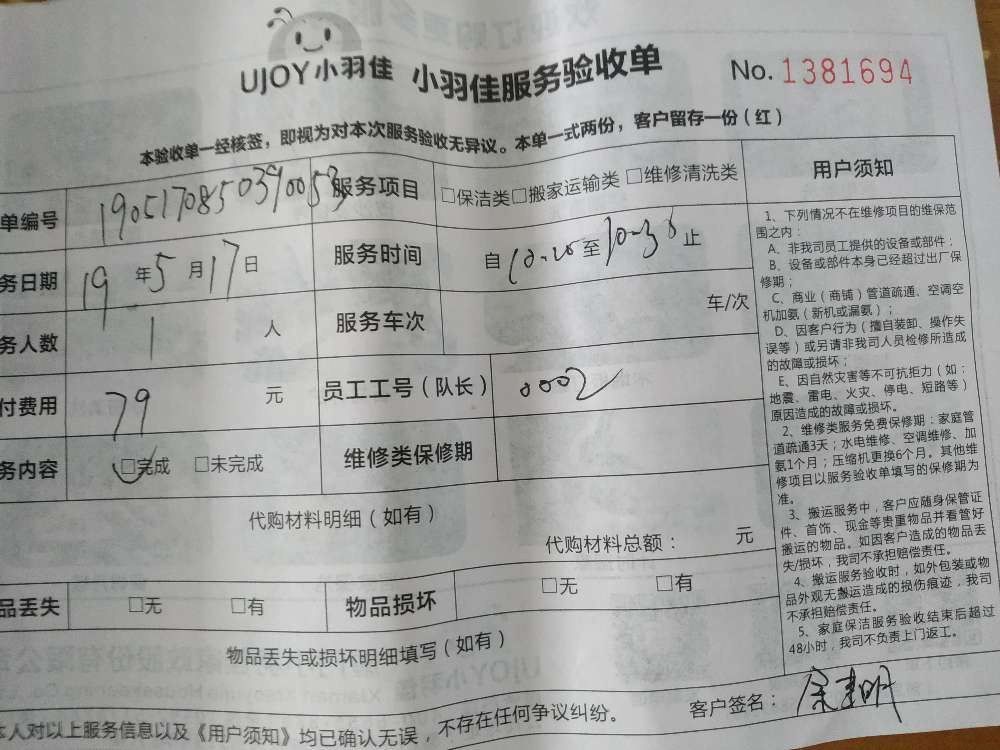 UJOY小羽佳 小羽佳服务验收单 No. 1381694
本验收单一经核签，即视为对本次服务验收无异议。本单一式两份，客户留存一份（红）
单编号 1905170850390053 服务项目 □保洁类□搬家运输类 □维修清洗类
务日期 19 年 5 月 17 日 服务时间 自 10:20 至 10:30 止
务人数 1 人 服务车次 车/次
付费用 79 元 员工工号（队长） 0002
务内容 □完成 □未完成 维修类保修期
代购材料明细（如有）
代购材料总额： 元
品丢失 □无 □有 物品损坏 □无 □有
物品丢失或损坏明细填写（如有）
本人对以上服务信息以及《用户须知》均已确认无误，不存在任何争议纠纷。 客户签名：
用户须知
1、下列情况不在维修项目的维保范
围之内：
A、非我司员工提供的设备或部件；
B、设备或部件本身已经超过出厂保
修期；
C、商业（商铺）管道疏通、空调空
机加氨（新机或漏氨）；
D、因客户行为（擅自装卸、操作失
误等）或另请非我司人员检修所造成
的故障或损坏；
E、因自然灾害等不可抗拒力（如：
地震、雷电、火灾、停电、短路等）
原因造成的故障或损坏。
2、维修类服务免费保修期：家庭管
道疏通3天；水电维修、空调维修、加
氨1个月；压缩机更换6个月。其他维
修项目以服务验收单填写的保修期为
准。
3、搬运服务中，客户应随身保管证
件、首饰、现金等贵重物品并看管好
搬运的物品。如因客户造成的物品丢
失/损坏，我司不承担赔偿责任。
4、搬运服务验收时，如外包装或物
品外观无搬运造成的损伤痕迹，我司
不承担赔偿责任。
5、家庭保洁服务验收结束后超过
48小时，我司不负责上门返工。